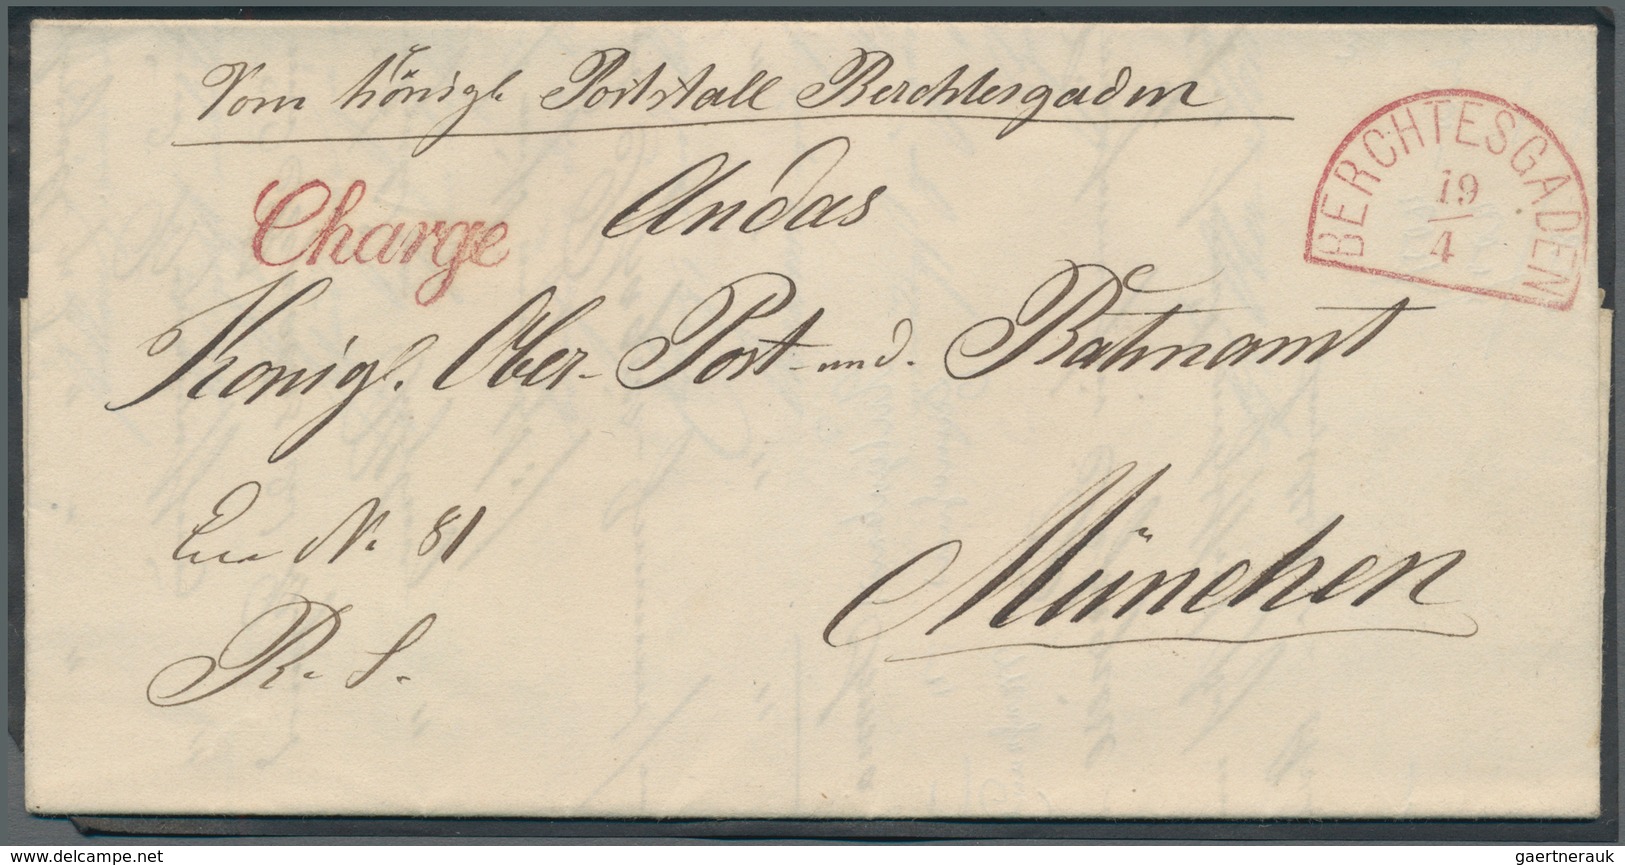 Vom königl. Poststall Berchtesgaden
BERCHTESGADEN
19
4
Chargé
An das
Königl. Ober-Post- und Bahnamt
N. 81
München
R. S.
© Delcampe.net
gaertnerauk